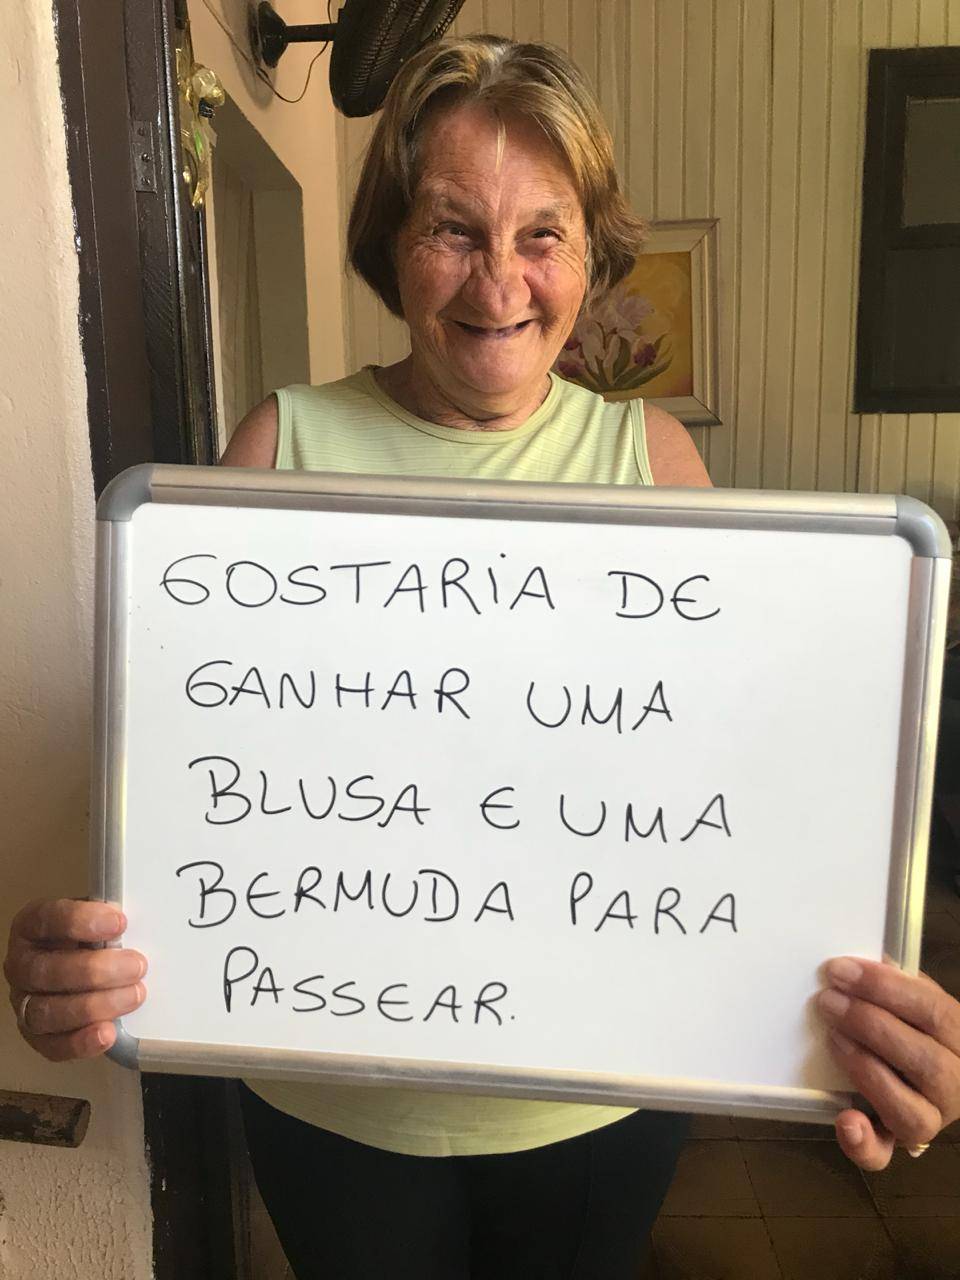 GOSTARiA DE
GANHAR UMA
BLUSA E UMA
BERMUDA PARA
PASSEAR.